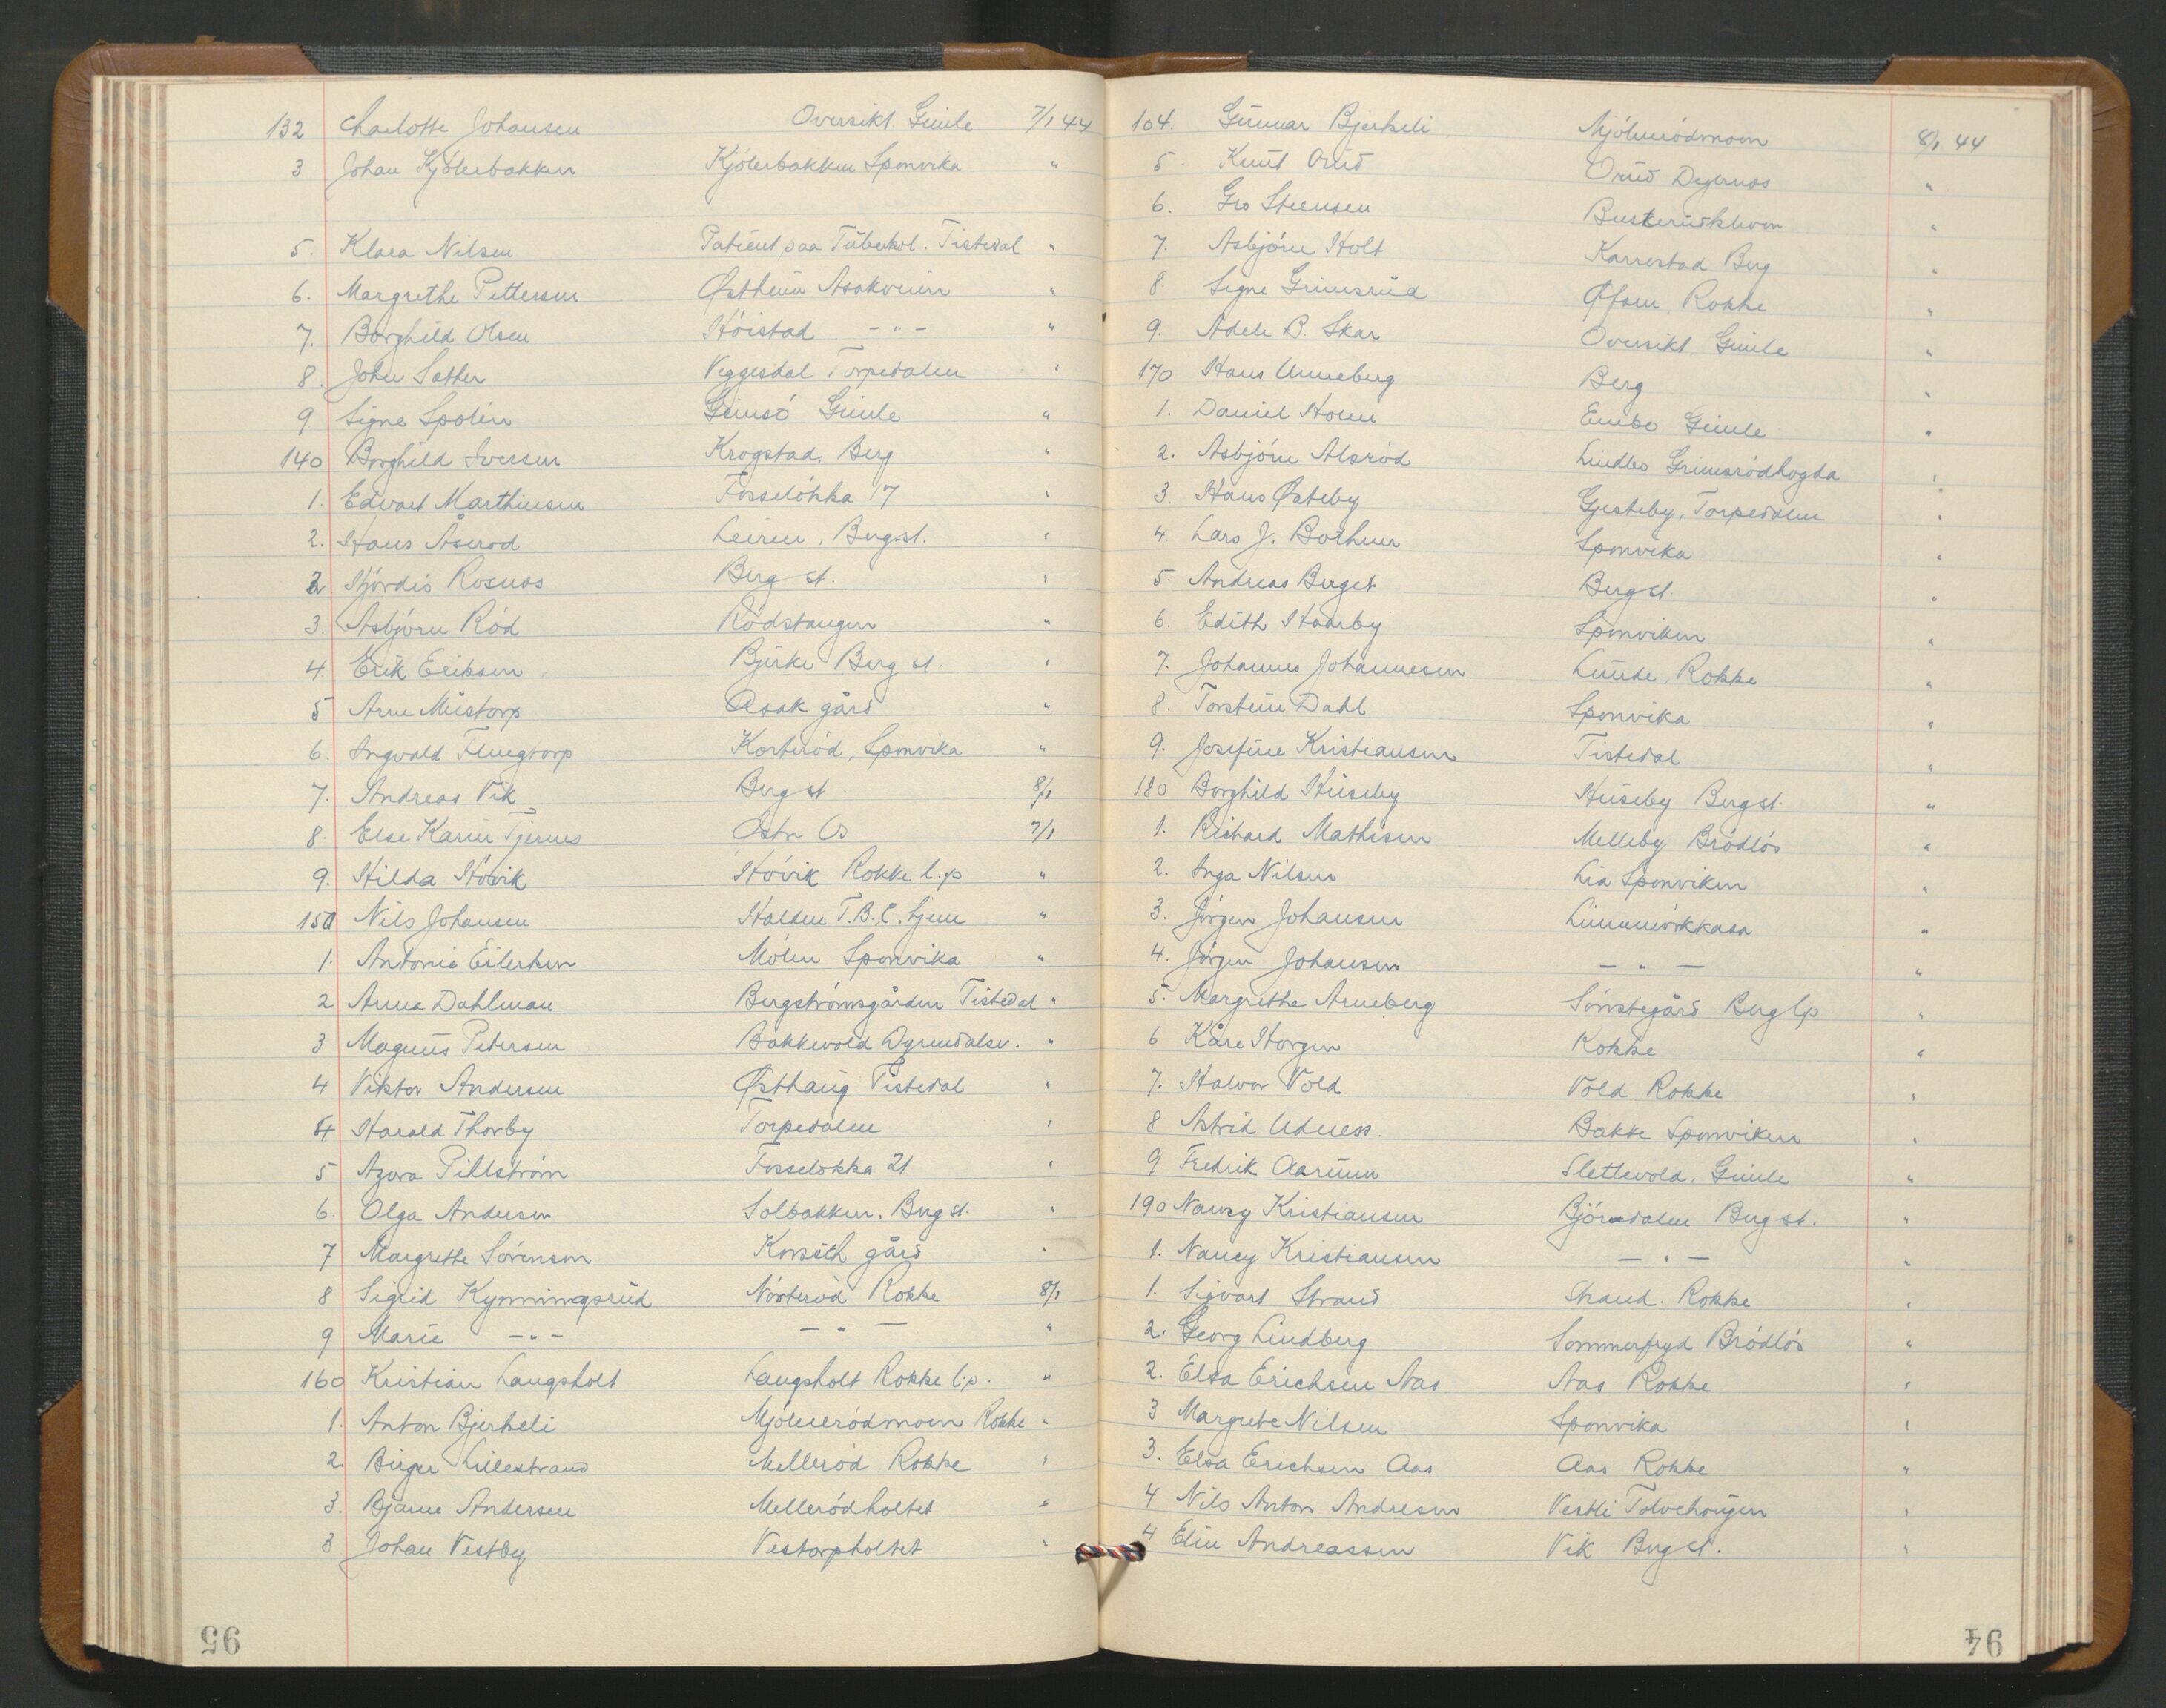 132 Charlotte Johansen Oversikt Gimle 7/1 44
3 Johan Kjölerbakken Kjölerbakken Sponvika "
5. Klara Nilsen Patient paa Tüberkol. Tistedal "
6. Margrethe Pettersen Østheim Asakveien "
7. Borghild Olsen Höistad - " - "
8. John Sæther Veggesdal Torpedalen "
9 Signe Spolén Grimsö Gimle "
140 Borghild Iversen Krogstad. Berg "
1. Edvart Marthinsen Fosselökka 17 "
2. Hans Åserød Leiren, Berg st. "
2 Hjördis Rosnes Berg st. "
3. Asbjörn Röd Rödstangen "
4. Erik Eriksen Bjerke Berg st. "
5 Arne Mustorp Asak gård "
6. Ingvald Flengtorp Korteröd, Sponvika "
7. Andreas Vik Berg st. 8/1
8. Else Karin Tjernes Östre Os 7/1
9. Hilda Hövik Hövik Rokke l.p "
150 Nils Johansen Halden T.B.C. hjem "
1. Antonie Eilertsen Mölen Sponvika "
2 Anna Dahlman Bergströmsgården Tistedal "
3 Magnus Petersen Bakkevold Dyrendalsv. "
4 Viktor Andersen Østhaug Tistedal "
4 Harald Thorby Torpedalen "
5 Azora Pihlström Fosselökka 21 "
6. Olga Andersen Solbakken. Berg st. "
7 Margrethe Sörensen Korseth gård "
8 Sigrid Kynningsrud Nösteröd Rokke 8/1
9 Marie - " - - " - "
160 Kristian Langsholt Langsholt Rokke l.p. "
1. Anton Bjerkeli Mjölneródmoen Rokke "
2. Birger Lillestrand Melleröd Rokke "
3. Bjarne Andersen Melleródholtet "
3 Johan Vestby Vestorpholtet "
95
104. Gunnar Bjerkeli Mjölnerödmoen 8/1 44
5. Knut Orud Orud Degernes "
6. Gro Steensen Busterudkleven "
7. Asbjörn Holt Karrestad Berg "
8. Signe Grimsrud Rokke "
9. Adele B. Skar Oversikt Gimle "
170 Hans Unneberg Berg "
1. Daniel Holm Enebo Gimle "
2. Asbjörn Alsröd Lindbo Grimsródhogda "
3. Hans Østeby Gjesteby, Torpedalen "
4. Lars J. Bothner Sponvika "
5. Andreas Berget Berg st. "
6. Edith Haarby Sponviken "
7. Johannes Johannesen Lunde, Rokke "
8. Torstein Dahl Sponvika "
9. Josefine Kristiansen Tistedal "
180 Borghild Huseby Huseby Berg st. "
1. Richard Mathisen Melleby Brödlös "
2. Inga Nilsen Lia Sponviken "
3. Jörgen Johansen Linnmörkkasa "
4. Jörgen Johansen - " - "
5. Margrethe Arneberg Sörnstegård Berg l.p "
6 Kåre Horgen Rokke "
7. Halvor Vold Vold Rokke "
8 Astrid Udness. Bakke Sponviken "
9 Fredrik Aarum Slettevold, Gimle "
190 Nancy Kristiansen Björndalen Berg st. "
1. Nancy Kristiansen - " - "
1. Sigvart Strand Strand. Rokke "
2. Georg Lindberg Sommerfryd Brödlös "
2. Elsa Erichsen Aas Aas Rokke "
3 Margrete Nilsen Sponvika "
3. Elsa Erichsen Aas Aas Rokke "
4 Nils Anton Andresen Vestli Tolvehougen "
4 Elin Andreassen Vik Berg st. "
94